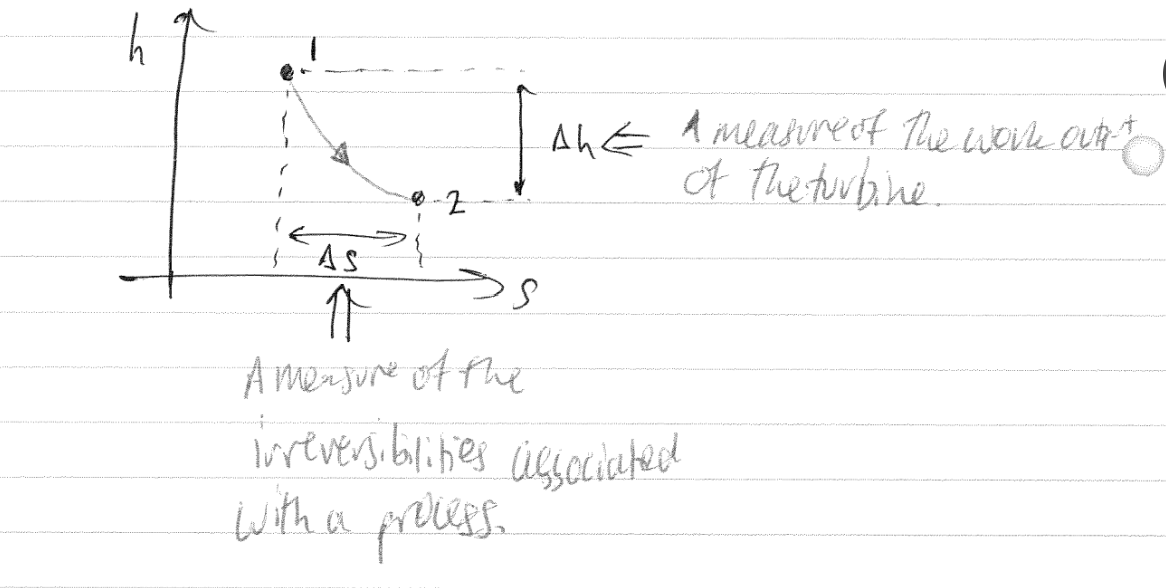 h
1
Δh ⇐ A measure of the work out
of the turbine.
2
Δs
s
⇑
A measure of the
irreversibilities associated
with a process.